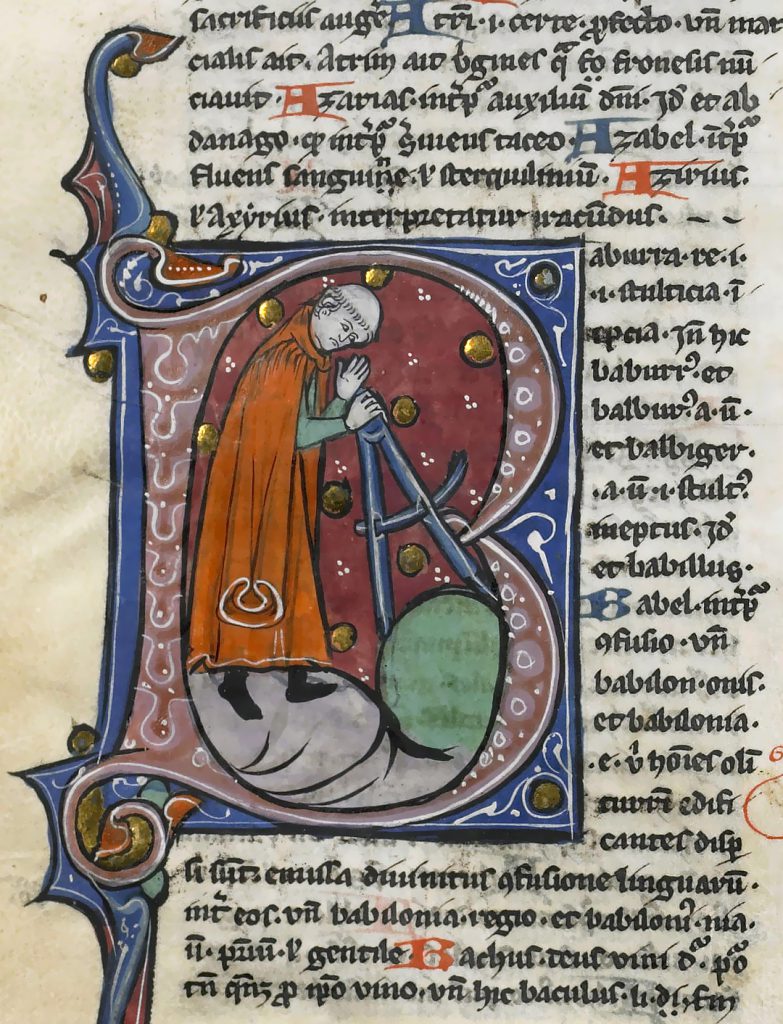 sacrificiis augere Atrñ .i. certe profecto. vñ mar
cialis ait. Atrim ait
ciavit Azarias. intpᵃ auxiliū dñi. Id et ab
danago. qd intpᵃ serviens taceo. Azabel. intpᵃ
fluens sanguine. ł sterquiliniū. Azirius.
ł Azyrius. interpretatur iracūdus.
Baburra. re. i.
.i. stulticia. ī
epcia. Jñ hic
baburr᷒. et
balbur᷒. a. ū.
et balbiger.
.a. ū. i. stult᷒.
ineptus. Id
et babillus.
Babel. intpᵃ
ꝯfusio. vñ
babilon. onis.
et babilonia.
.e. hoīes olī
turrī edifi
cantes disp
si sūt emissa divinitus ꝯfusione linguarū.
int̄ eos. vñ babilonia. regio. et babiloni᷒. nia.
ū. ł gentile. Bachus. deus vini dᵃ.
pro ipo vino. vñ hic baculus. li.